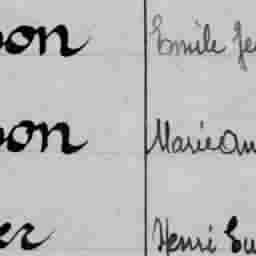 on Emile Je
on Marie an
er Henri Eu